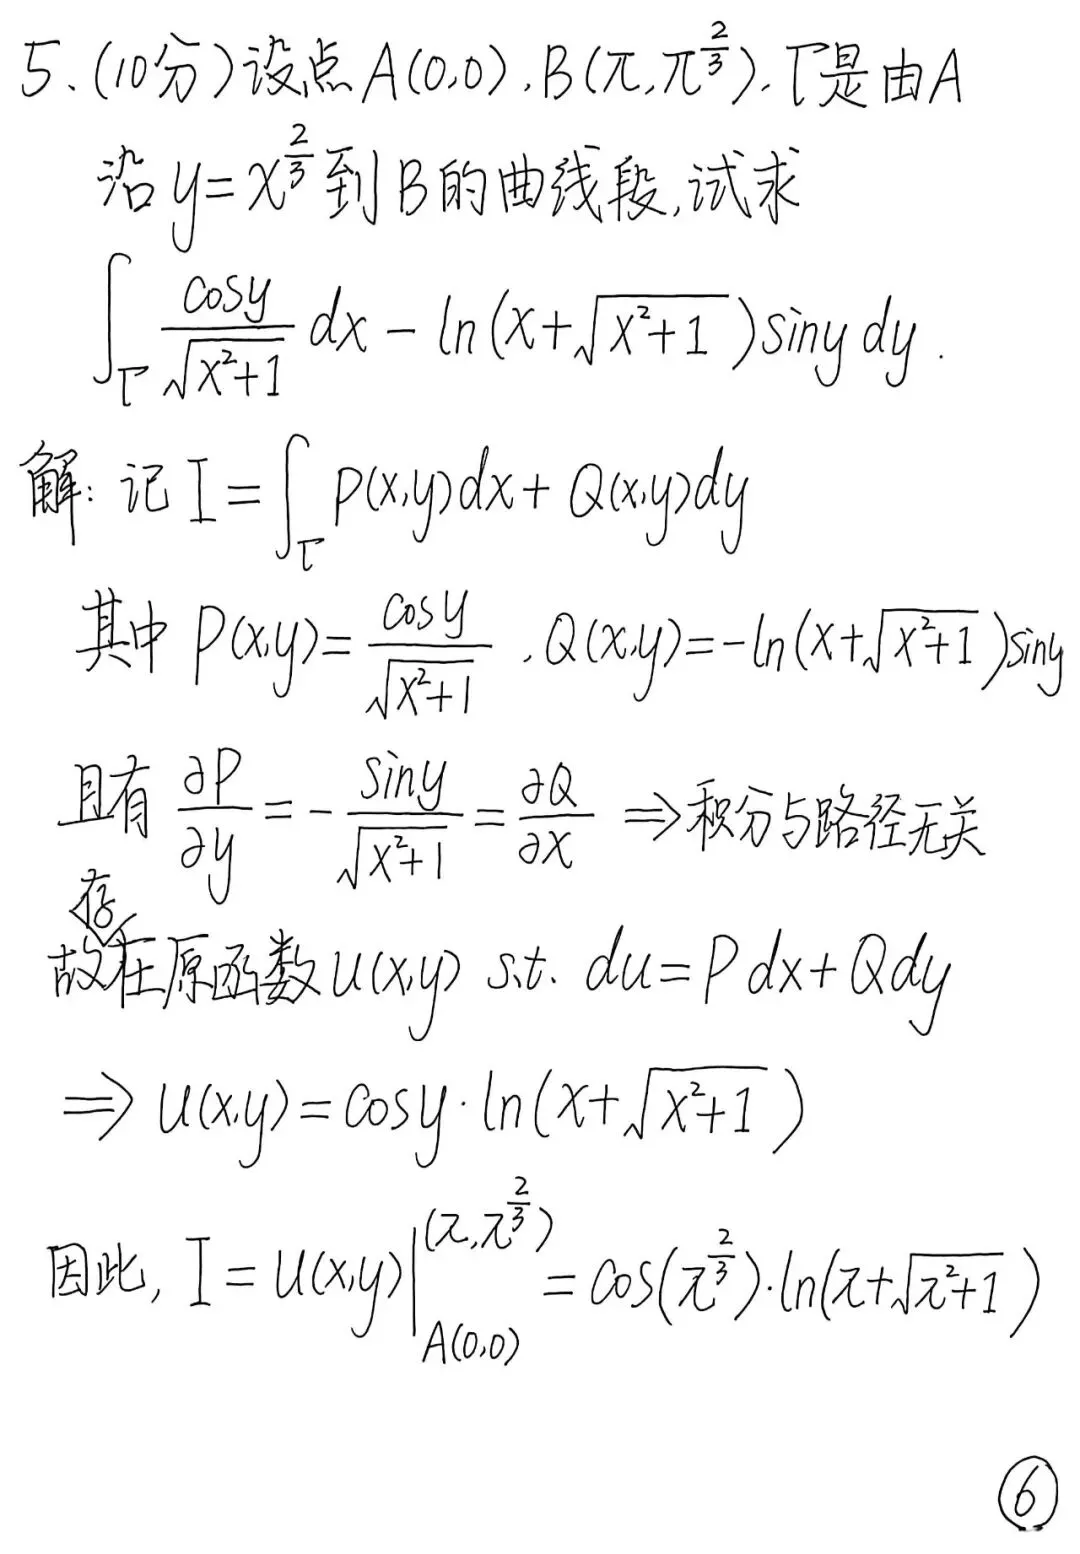 5、(10分)设点A(0,0),B(π,π^{2/3}),Γ是由A
沿y=x^{2/3}到B的曲线段,试求
∫_Γ cosy/√(x²+1) dx - ln(x+√(x²+1))siny dy.
解:记 I=∫_Γ P(x,y)dx+Q(x,y)dy
其中 P(x,y)=cosy/√(x²+1),Q(x,y)=-ln(x+√(x²+1))siny
且有 ∂P/∂y=-siny/√(x²+1)=∂Q/∂x ⇒积分与路径无关
故存在原函数u(x,y) s.t. du=Pdx+Qdy
⇒ u(x,y)=cosy·ln(x+√(x²+1))
因此, I=u(x,y)|_{A(0,0)}^{(π,π^{2/3})}=cos(π^{2/3})·ln(π+√(π²+1))
⑥